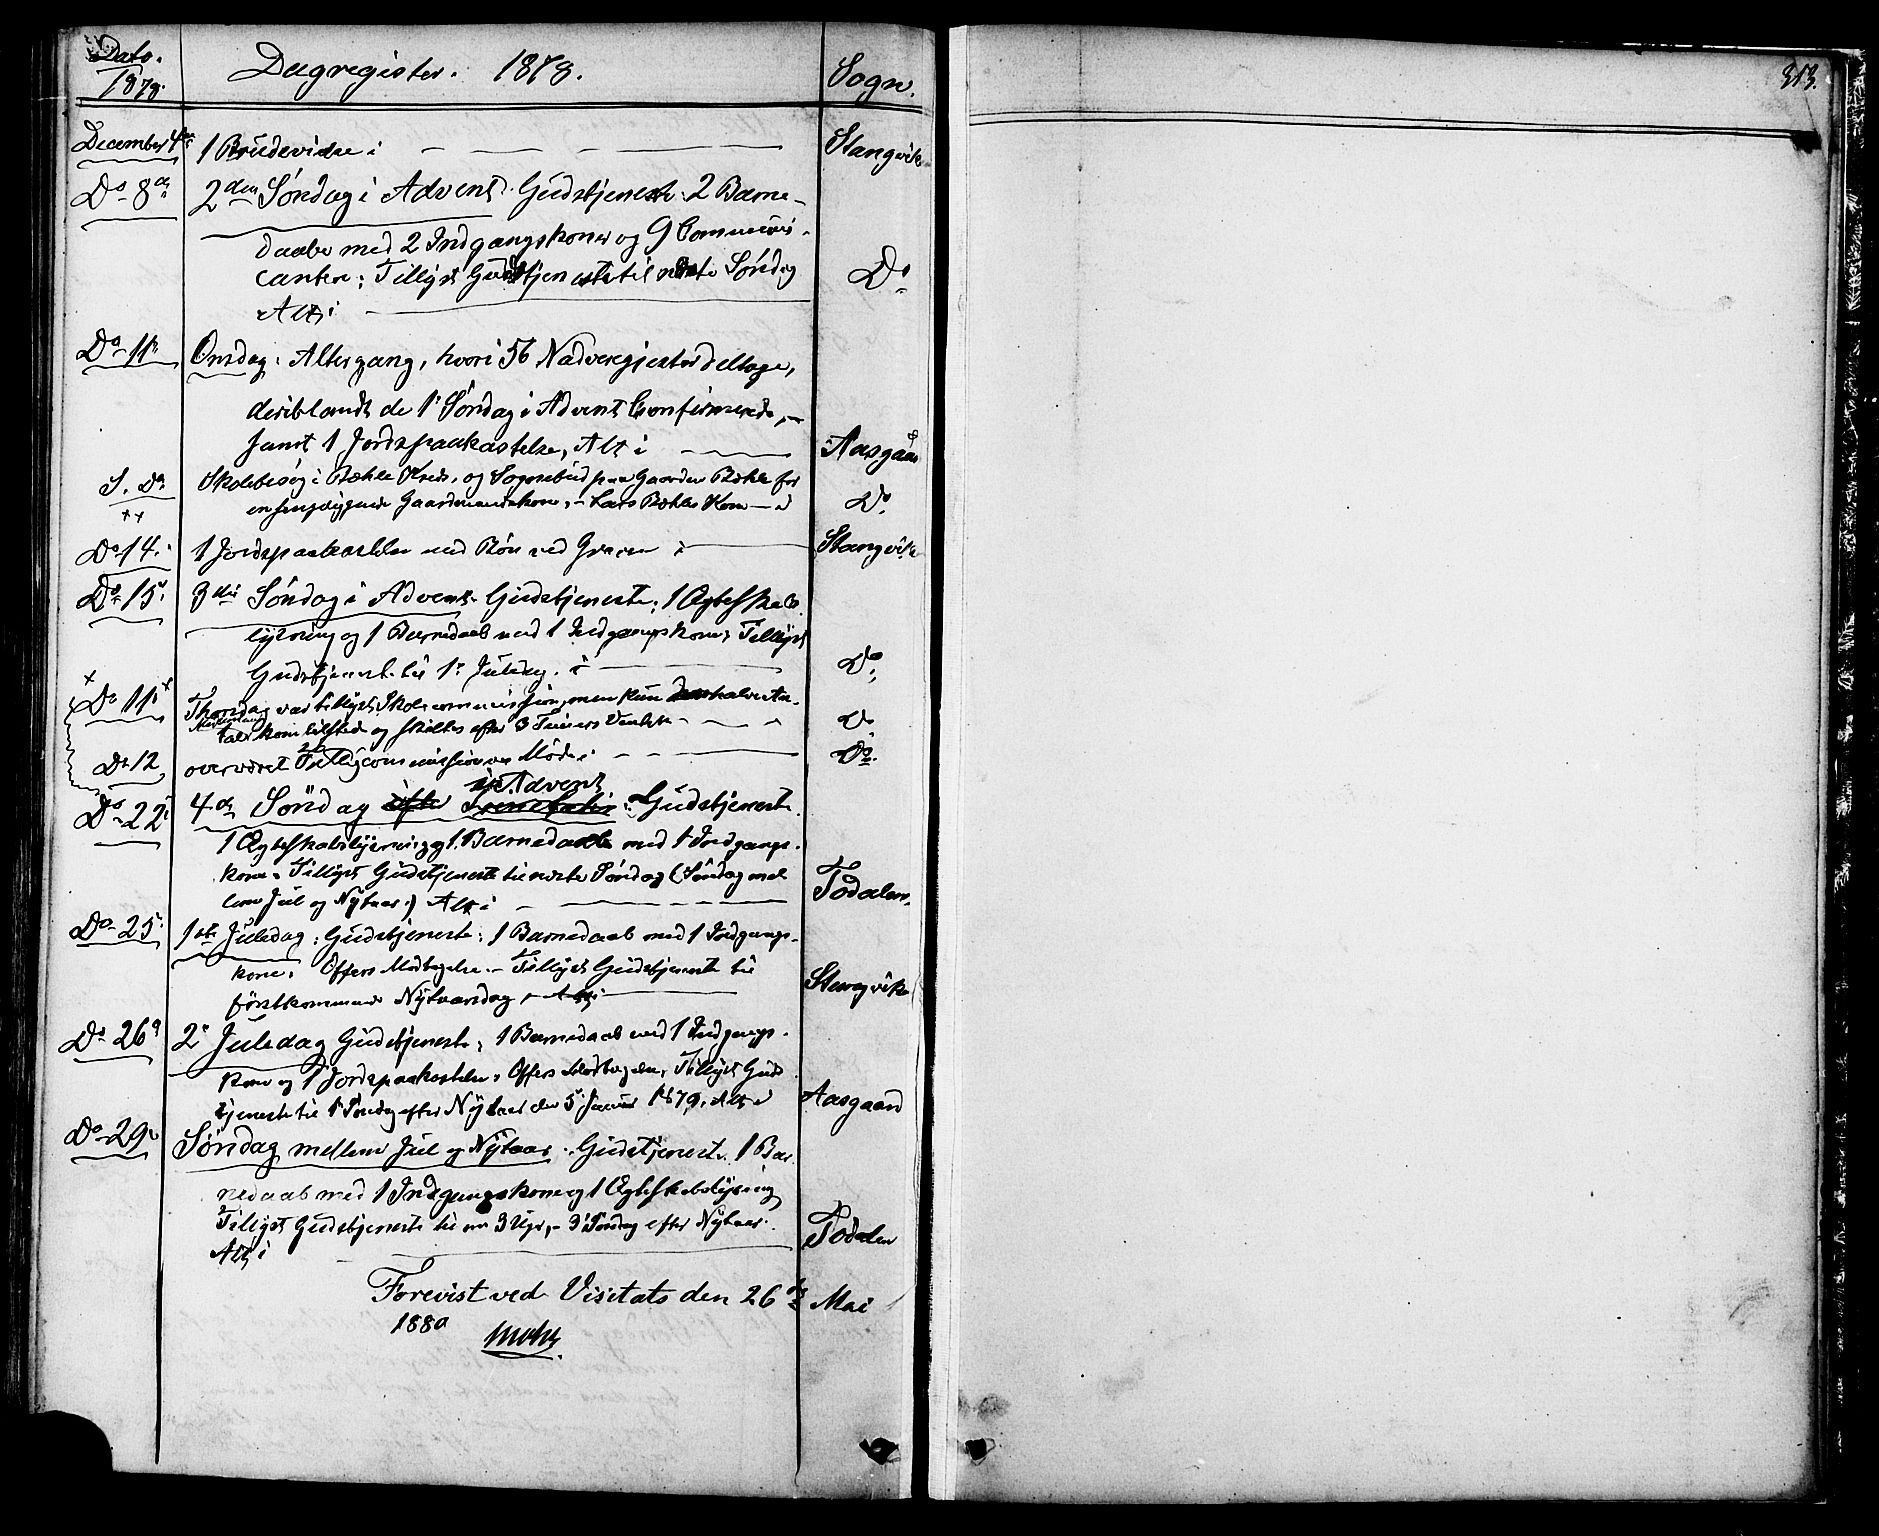 Dato.
1878.
Dagregister. 1878.
Sogn.
313.
December 4de
1 Brudevielse i
Stangvik
Do 8de
2den Søndag i Advent. Gudstjeneste. 2 Barne-
daabe med 2 Indgangskoner og 9 Communi-
canter; Tillyst Gudstjeneste til næste Søndag
Alt i
Do
Do 11te
Onsdag. Altergang, hvori 56 Nadveregjæster deltoge,
deriblandt de 1ste Søndag i Advent Confirmerede,
samt 1 Jordspaakastelse, Alt i
Aasgaard
S. Do
Skolebesøg i Bøhle Kreds, og Sognebud paa Gaarden Bøhle for
en sengeliggende Gaardmandskone, - Lars Bøhles Kone - i
Do
Do 14.
1 Jordspaakastelse med Bøn ved Graven i
Stangvik
Do 15.
3die Søndag i Advent. Gudstjeneste; 1 Ægteskabs
lysning og 1 Barnedaab med 1 Indgangskone; Tillyst
Gudstjeneste til 1ste Juledag. i
Do
Do 11te
var tillyst Skolecommission, men kun halve An-
tal kom tilstede og skiltes efter 3 Timers Venten
Do
Do 12
overværet Møde i
Do.
Do 22
4de Søndag efter Trinitatis i Advent. Gudstjeneste
1 Ægteskabslysning og 1 Barnedaab med 1 Indgangs-
kone. Tillyst Gudstjeneste til næste Søndag (Søndag mel
lem Jul og Nytaar) Alt i
Todalen.
Do 25.
1ste Juledag. Gudstjeneste; 1 Barnedaab med 1 Indgangs-
kone. Offers Modtagelse. - Tillyst Gudstjeneste til
førstkommende Nytaarsdag - Alt i
Stangvik
Do 26
2. Juledag Gudstjeneste; 1 Barnedaab med 1 Indgangs-
kone og 1 Jordspaakastelse. Offers Modtagelse, Tillyst Guds
tjeneste til 1ste Søndag efter Nytaar den 5te Januar 1879. Alt i
Aasgaard
Do 29
Søndag mellem Jul og Nytaar. Gudstjeneste. 1 Bar-
nedaab med 1 Indgangskone og 1 Ægteskabslysning
Tillyst Gudstjeneste til om 3 Uger, - 3die Søndag efter Nytaar.
Alt i
Todalen
Forevist ved Visitats den 26de Mai
1880